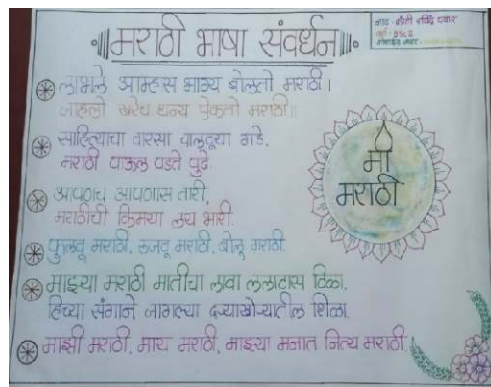 मराठी भाषा संवर्धन
लाभले आम्हास भाग्य बोलतो मराठी।
जाहलो खरेच धन्य ऐकतो मराठी॥
साहित्याचा वारसा चालवूया गडे,
मराठी पाऊल पडते पुढे.
आपणच आपणास तारी,
मराठीची किमया लय भारी.
फुलवू मराठी, सजवू मराठी, बोलू मराठी.
माझ्या मराठी मातीचा लावा ललाटास टिळा,
हिच्या संगाने जागल्या दऱ्याखोऱ्यातील शिळा.
माझी मराठी, माय मराठी, माझ्या मनात नित्य मराठी.
मी
मराठी